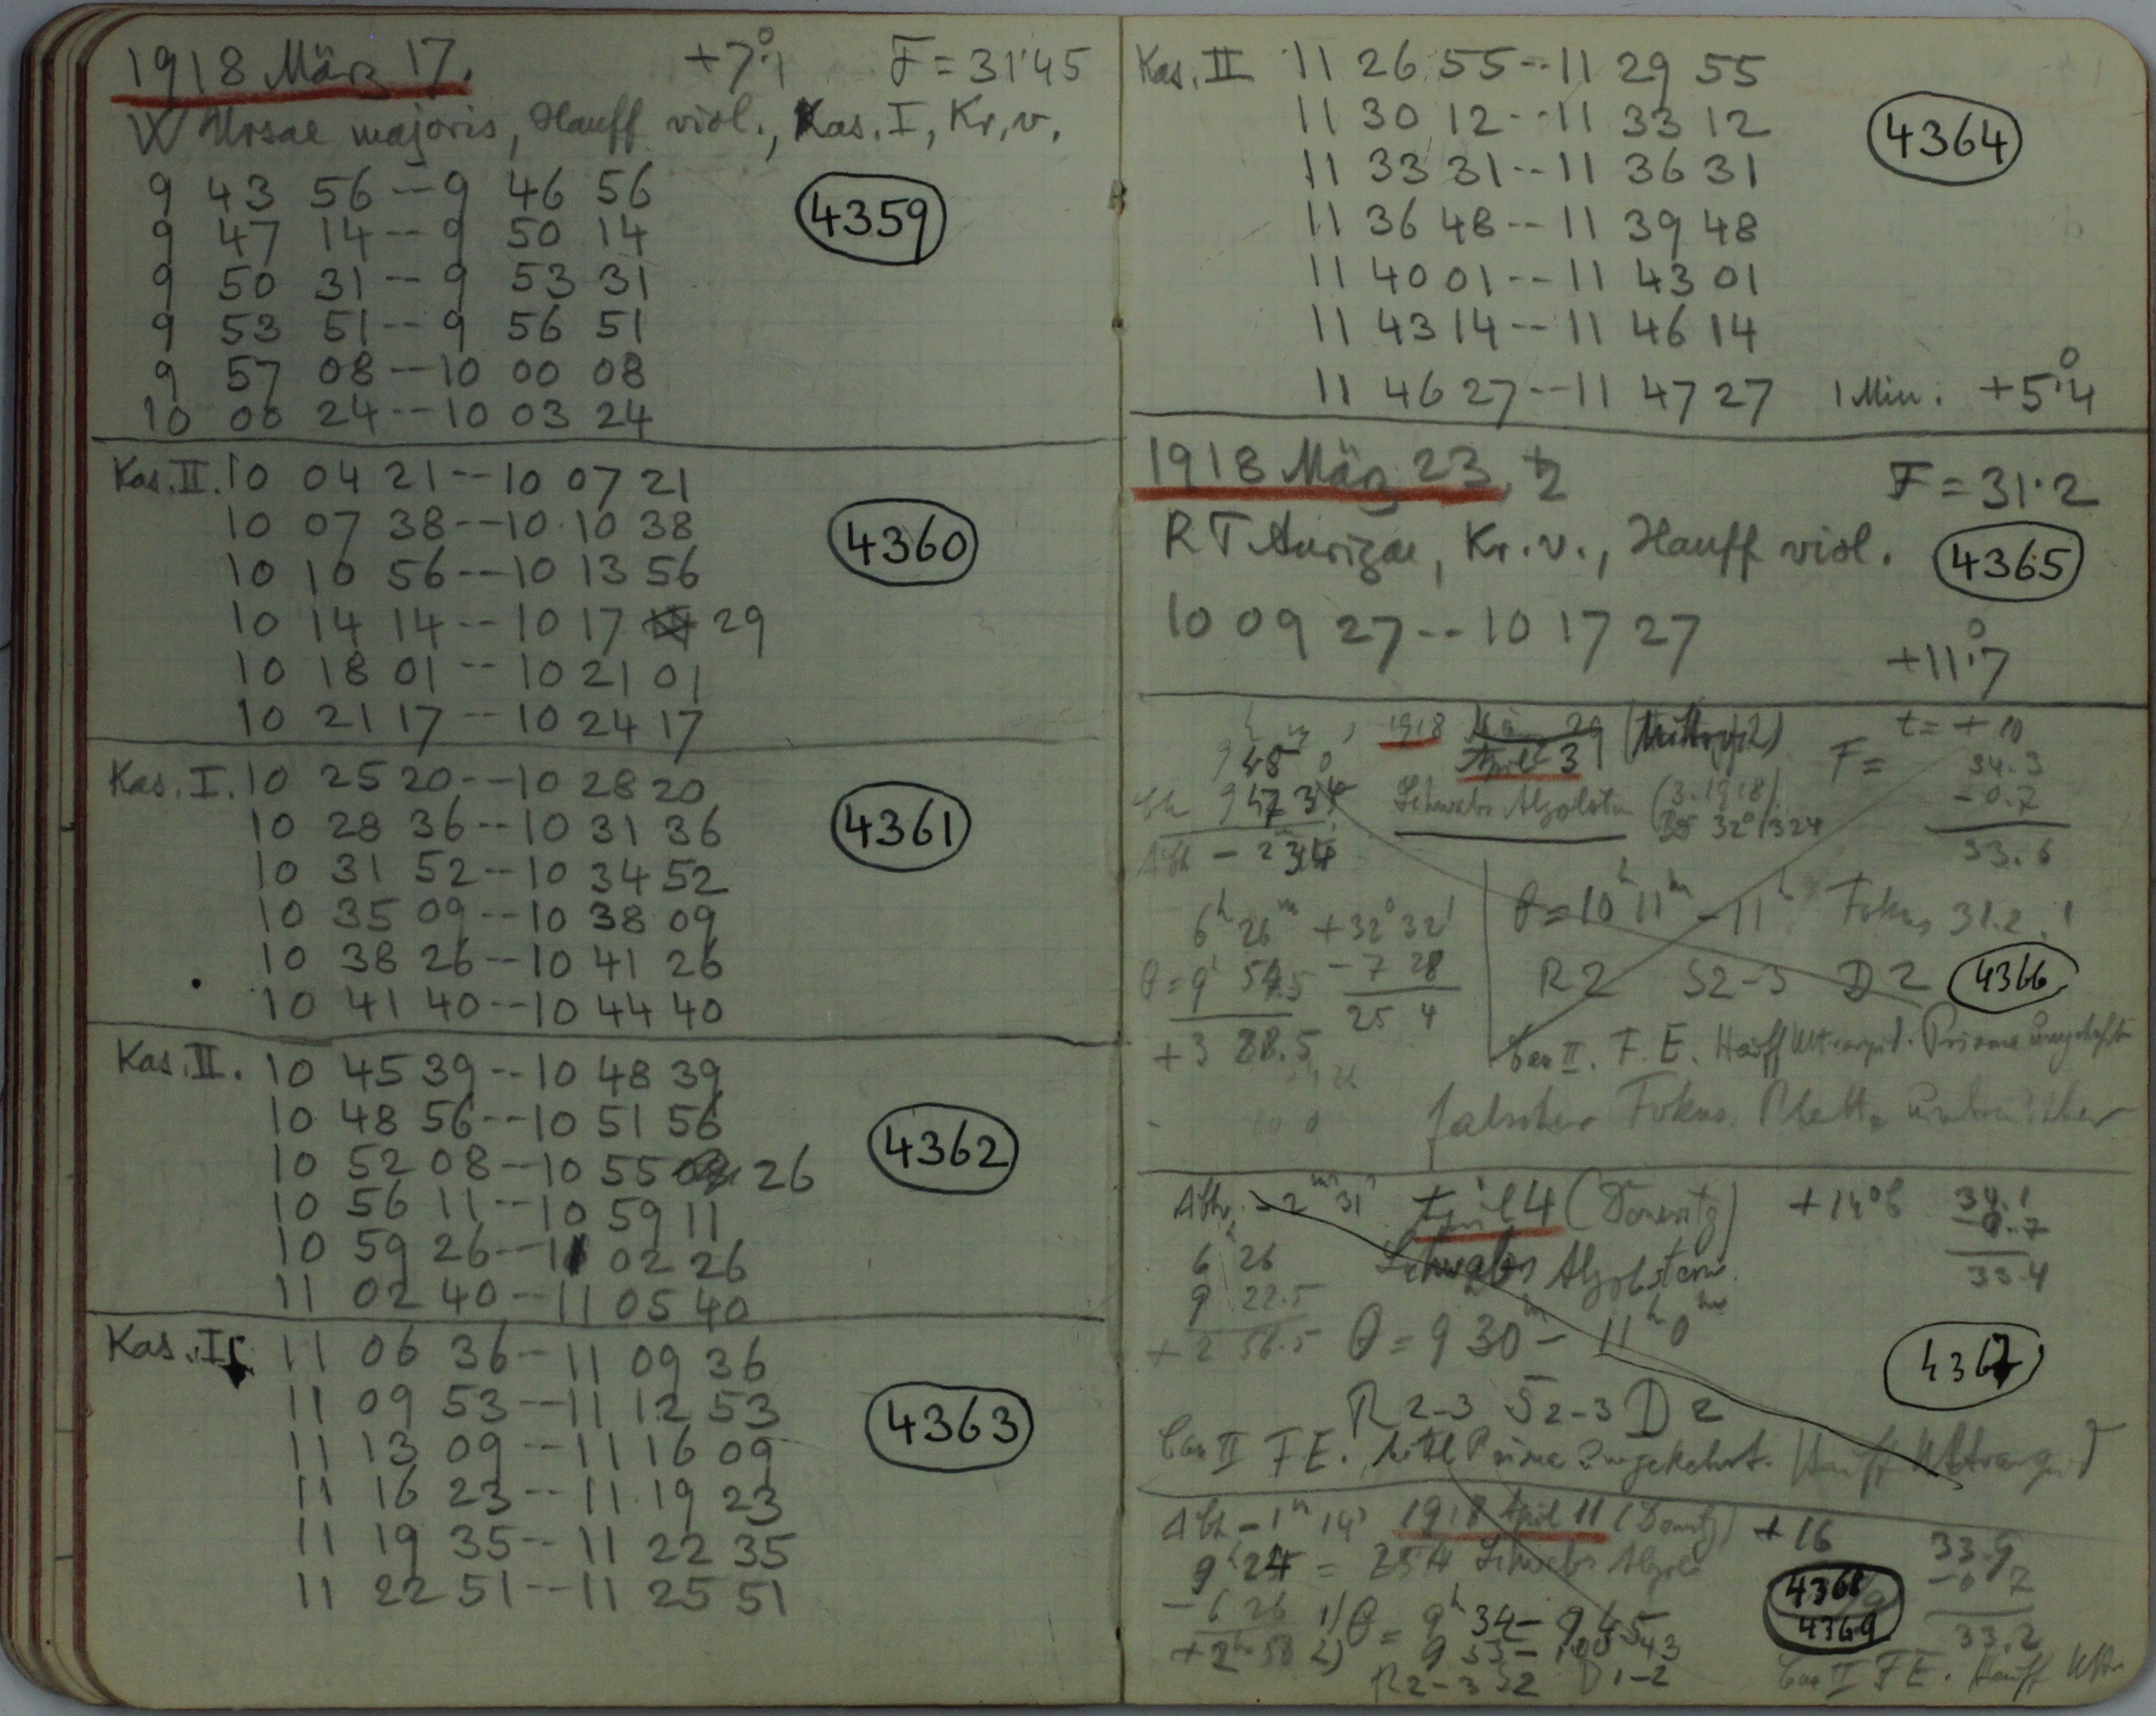 1918 März 17. +7°.1 F = 31.45
W Ursae majoris, Hauff viol., Kas. I, Kr. v.
9 43 56 -- 9 46 56
4359
9 47 14 -- 9 50 14
9 50 31 -- 9 53 31
9 53 51 -- 9 56 51
9 57 08 -- 10 00 08
10 00 24 -- 10 03 24
Kas. II. 10 04 21 -- 10 07 21
10 07 38 -- 10 10 38
4360
10 10 56 -- 10 13 56
10 14 14 -- 10 17 29
10 18 01 -- 10 21 01
10 21 17 -- 10 24 17
Kas. I. 10 25 20 -- 10 28 20
10 28 36 -- 10 31 36
4361
10 31 52 -- 10 34 52
10 35 09 -- 10 38 09
10 38 26 -- 10 41 26
10 41 40 -- 10 44 40
Kas. II. 10 45 39 -- 10 48 39
10 48 56 -- 10 51 56
4362
10 52 08 -- 10 55 26
10 56 11 -- 10 59 11
10 59 26 -- 11 02 26
11 02 40 -- 11 05 40
Kas. I. 11 06 36 -- 11 09 36
11 09 53 -- 11 12 53
4363
11 13 09 -- 11 16 09
11 16 23 -- 11 19 23
11 19 35 -- 11 22 35
11 22 51 -- 11 25 51
Kas. II 11 26 55 -- 11 29 55
11 30 12 -- 11 33 12
4364
11 33 31 -- 11 36 31
11 36 48 -- 11 39 48
11 40 01 -- 11 43 01
11 43 14 -- 11 46 14
11 46 27 -- 11 47 27 1 Min. +5°.4
1918 März 23, F = 31.2
RT Aurigae, Kr. v., Hauff viol.
4365
10 09 27 -- 10 17 27
+11°.7
1918 t = + 10
April 3 F = 34.3
9 47 Schwabs Algolstern -0.7
33.6
6h 26m +32° 32'
θ = 10h 11m - 11h Fokus 31.2!
θ = 9h 54.5 - 7 28
R2 S2-3 D2
4366
25 4
+3 28.5
Cas II. F. E. Hauff Prisma
falscher Fokus. Platte
-2m 31s April 4 34.1
-0.7
6 26 Schwabs Algolstern.
33.4
9 22.5
+2 56.5 θ = 9 30m - 11h 0m
4367
R 2-3 S 2-3 D 2
Cas II F E. Prisma umgekehrt. Hauff
-1m 14s 1918 April 11 +16
33.9
9h 24 = Schwabs Algol
-0.7
4368
4369
-6 26 1) θ = 9h 34 - 9 45
33.2
+2h 58 2)
R 2-3 S2 D 1-2
Cas II F E. Hauff